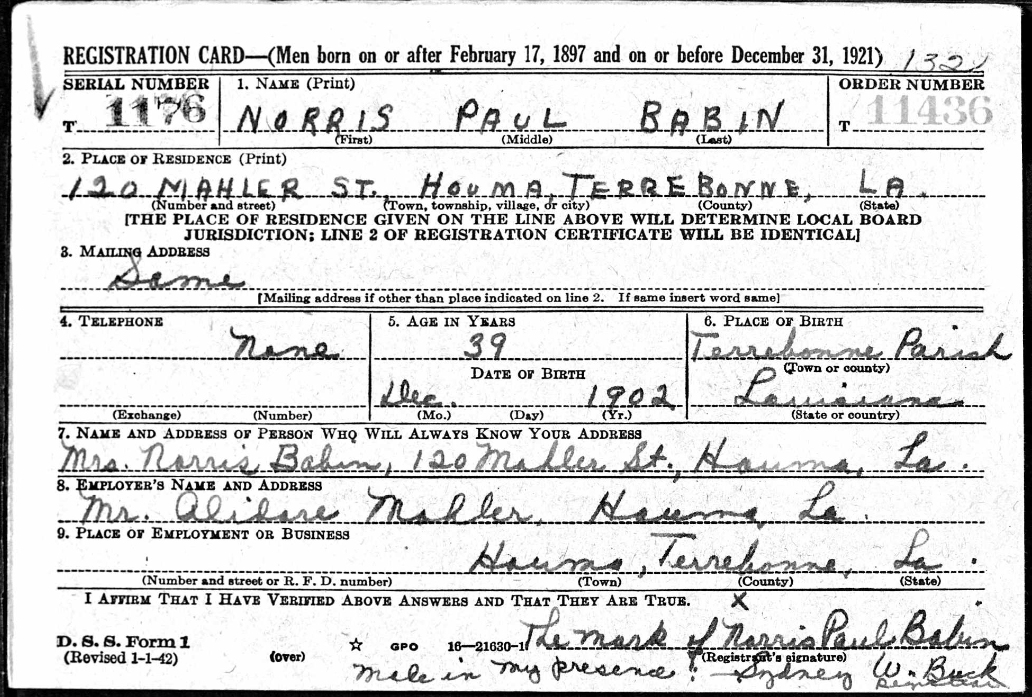 REGISTRATION CARD—(Men born on or after February 17, 1897 and on or before December 31, 1921) 132
SERIAL NUMBER 1. NAME (Print) ORDER NUMBER
T 1176 NORRIS PAUL BABIN T 11436
(First) (Middle) (Last)
2. PLACE OF RESIDENCE (Print)
120 MAHLER ST. HOUMA, TERREBONNE, LA.
(Number and street) (Town, township, village, or city) (County) (State)
[THE PLACE OF RESIDENCE GIVEN ON THE LINE ABOVE WILL DETERMINE LOCAL BOARD
JURISDICTION; LINE 2 OF REGISTRATION CERTIFICATE WILL BE IDENTICAL]
3. MAILING ADDRESS
Same
[Mailing address if other than place indicated on line 2. If same insert word same]
4. TELEPHONE 5. AGE IN YEARS 6. PLACE OF BIRTH
None 39 Terrebonne Parish
DATE OF BIRTH (Town or county)
Dec. 1902 Louisiana
(Exchange) (Number) (Mo.) (Day) (Yr.) (State or country)
7. NAME AND ADDRESS OF PERSON WHO WILL ALWAYS KNOW YOUR ADDRESS
Mrs. Norris Babin, 120 Mahler St., Houma, La.
8. EMPLOYER'S NAME AND ADDRESS
Mr. Alidore Mahler, Houma, La.
9. PLACE OF EMPLOYMENT OR BUSINESS
Houma, Terrebonne, La.
(Number and street or R. F. D. number) (Town) (County) (State)
I AFFIRM THAT I HAVE VERIFIED ABOVE ANSWERS AND THAT THEY ARE TRUE. X
D. S. S. Form 1 GPO 16—21630-1 The mark of Norris Paul Babin
(Revised 1-1-42) (over) (Registrant's signature)
Made in my presence: Sydney W. Buck
Registrar